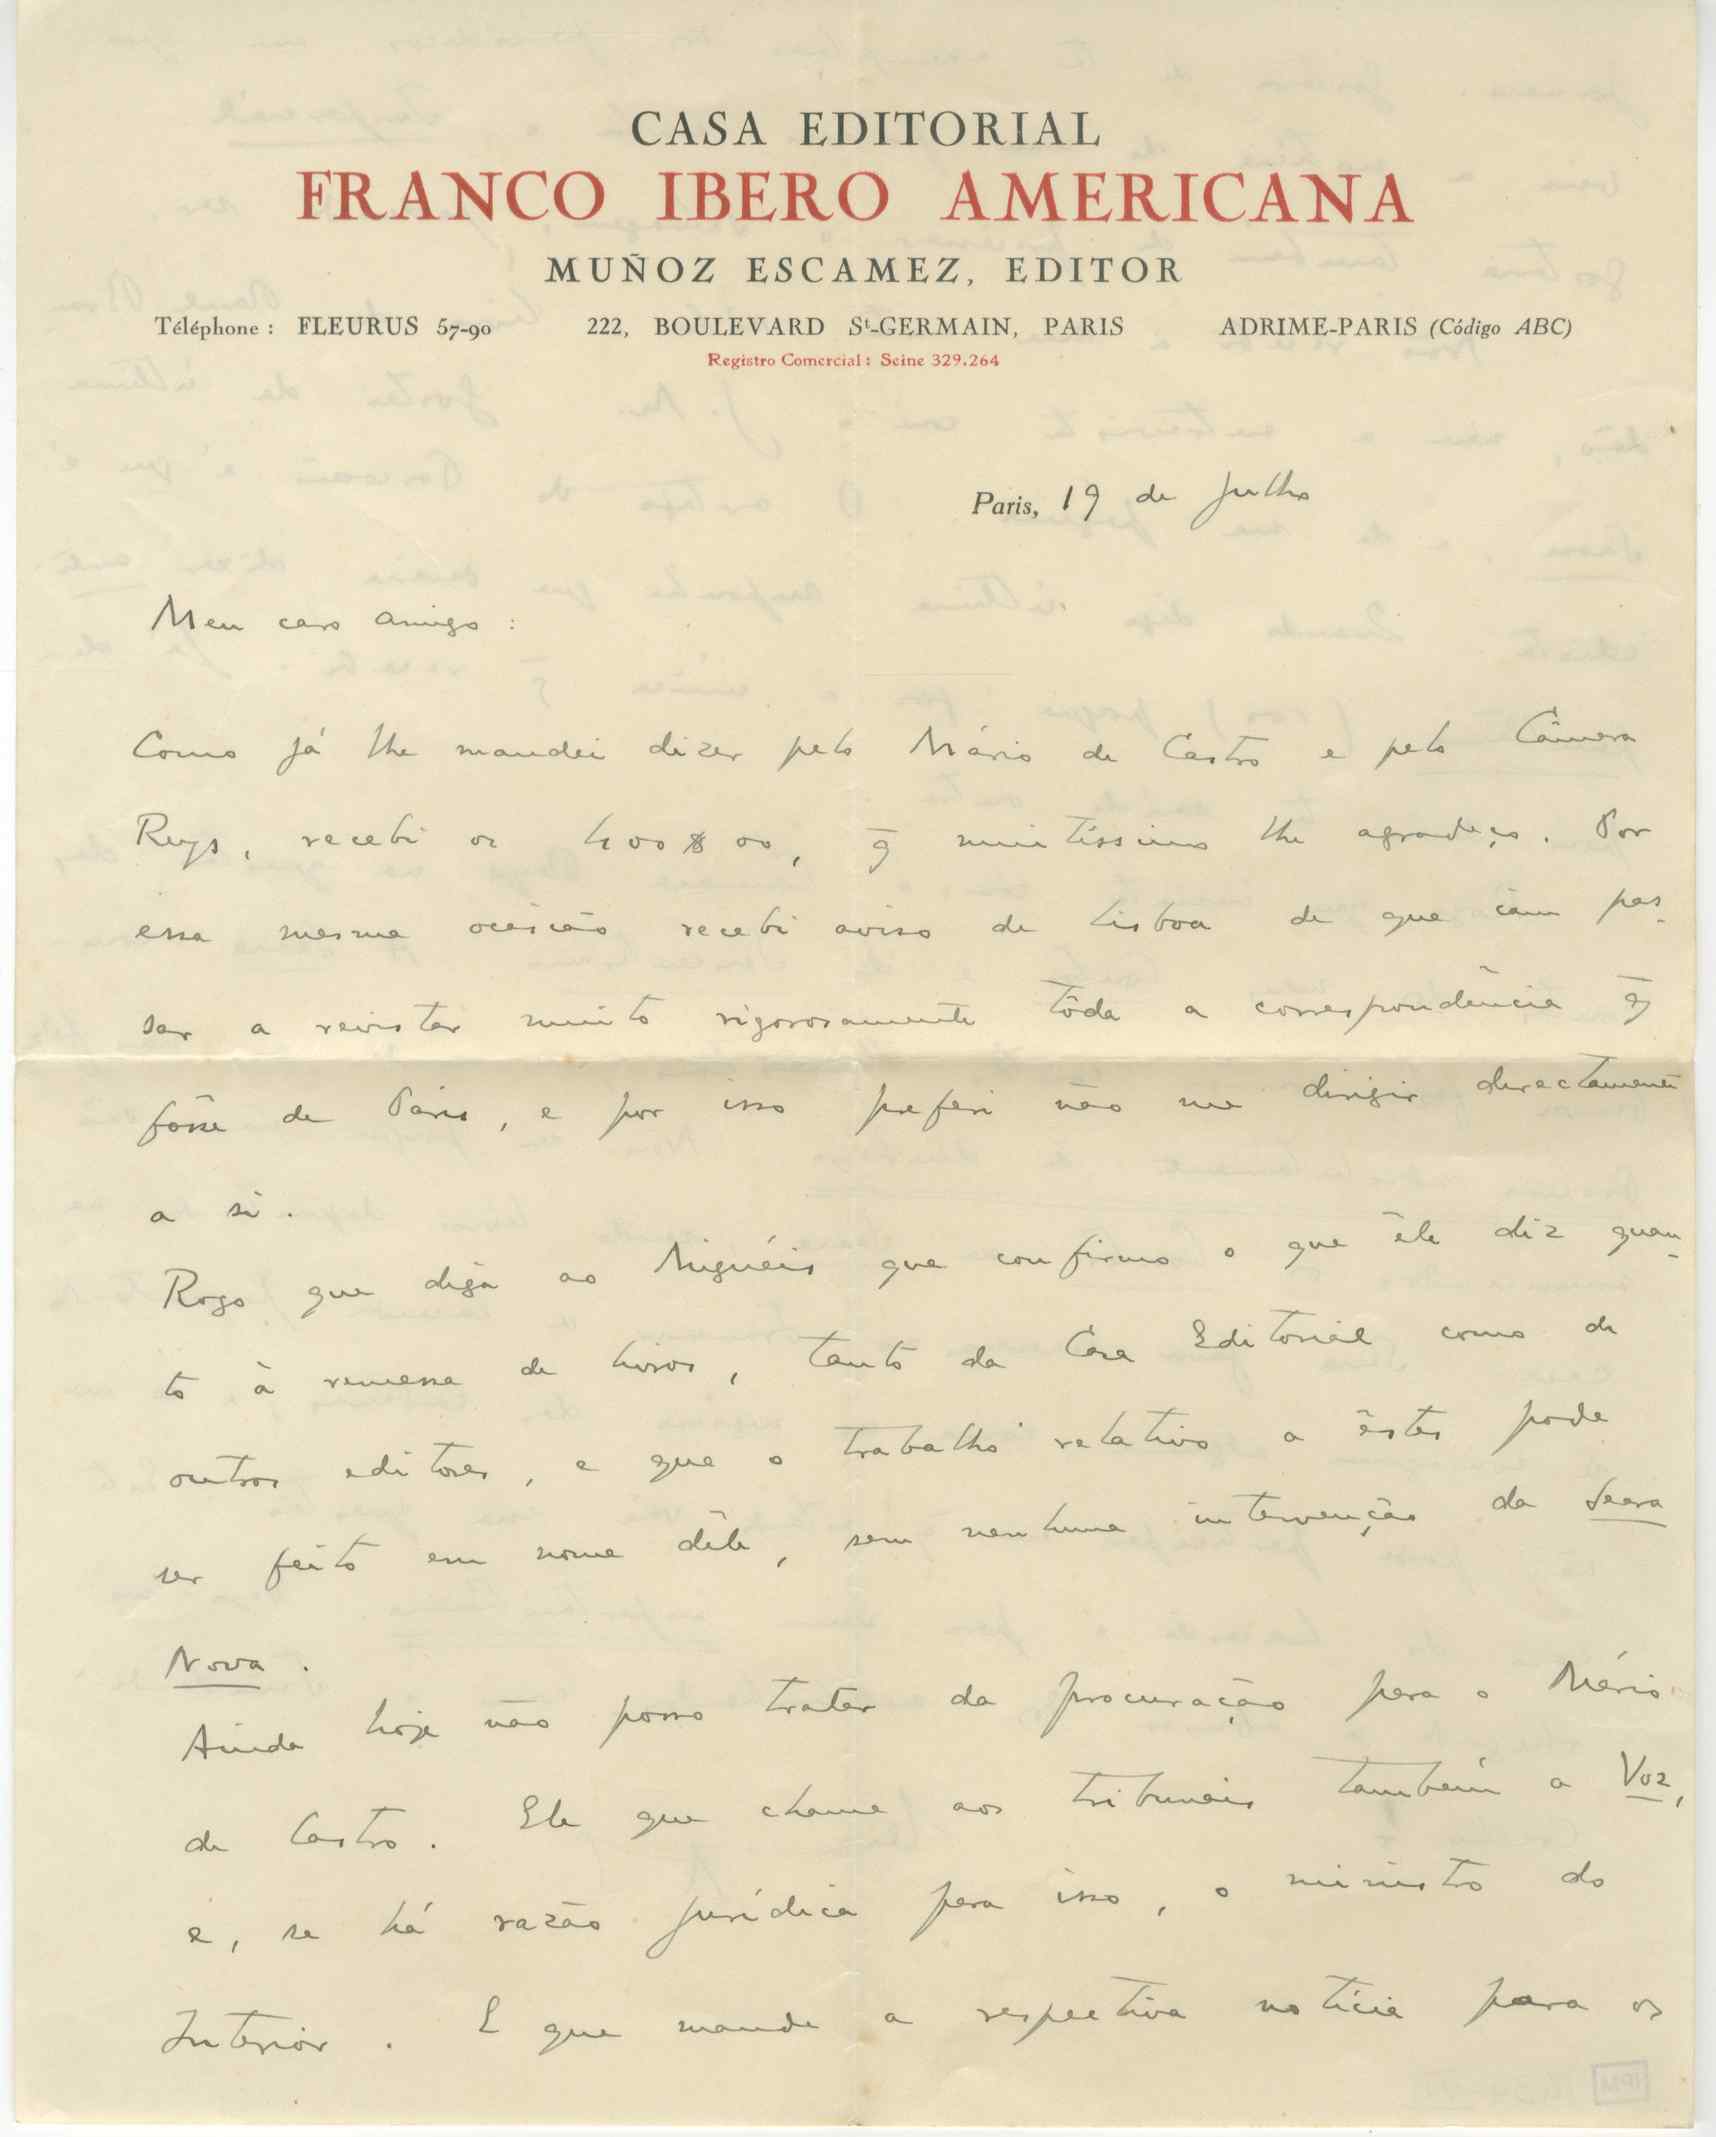 CASA EDITORIAL
FRANCO IBERO AMERICANA
MUÑOZ ESCAMEZ, EDITOR
Téléphone : FLEURUS 57-90 222, BOULEVARD St-GERMAIN, PARIS ADRIME-PARIS (Código ABC)
Registro Comercial : Seine 329.264
Paris, 19 de Julho
Meu caro amigo :
Como já lhe mandei dizer pelo Mário de Castro e pelo Câmara
Reys, recebi os 400$00, q̄ muitíssimo lhe agradeço. Por
essa mesma ocasião recebi aviso de Lisboa de que iam pas-
sar a revistar muito rigorosamente tôda a correspondência q̄
fôsse de Paris, e por isso preferi não me dirigir directamente
a si.
Rogo que diga ao Miguéis que confirmo o que êle diz quan-
to à remessa de livros, tanto da Casa Editorial como de
outros editores, e que o trabalho relativo a êstes pode
ser feito em nome dêle, sem nenhuma intervenção da Seara
Nova.
Ainda hoje não posso tratar da procuração para o Mário
de Castro. Ele que chame aos tribunais também a Voz,
e, se há razão jurídica para isso, o ministro do
Interior. E que mande a respectiva notícia para os